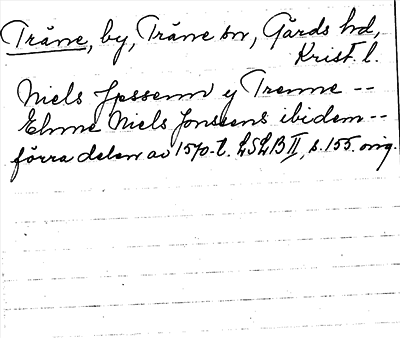 Träne, by, Träne sn, Gärds hd,
Krist. l.
Niels Jpssenn y Trenne --
Ehme Niels Jonssens ibidem --
förra delen av 1570-t. LSLB II, s. 155. orig.